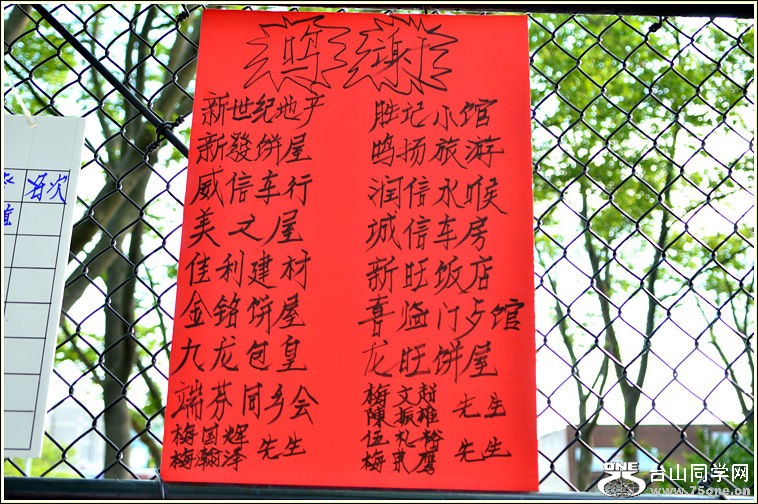 鸣谢
新世纪地产
新發饼屋
威信车行
美之屋
佳利建材
金铭饼屋
九龙包皇
端芬同乡会
梅国辉
梅瀚泽
先生
胜记小馆
鸣扬旅游
润信水喉
城信车房
新旺饭店
喜临门歺馆
龙旺饼屋
梅文超
陳振雄
先生
伍礼裕
梅東鹰
先生
次
ONE
台山同学网
www.75one.cn